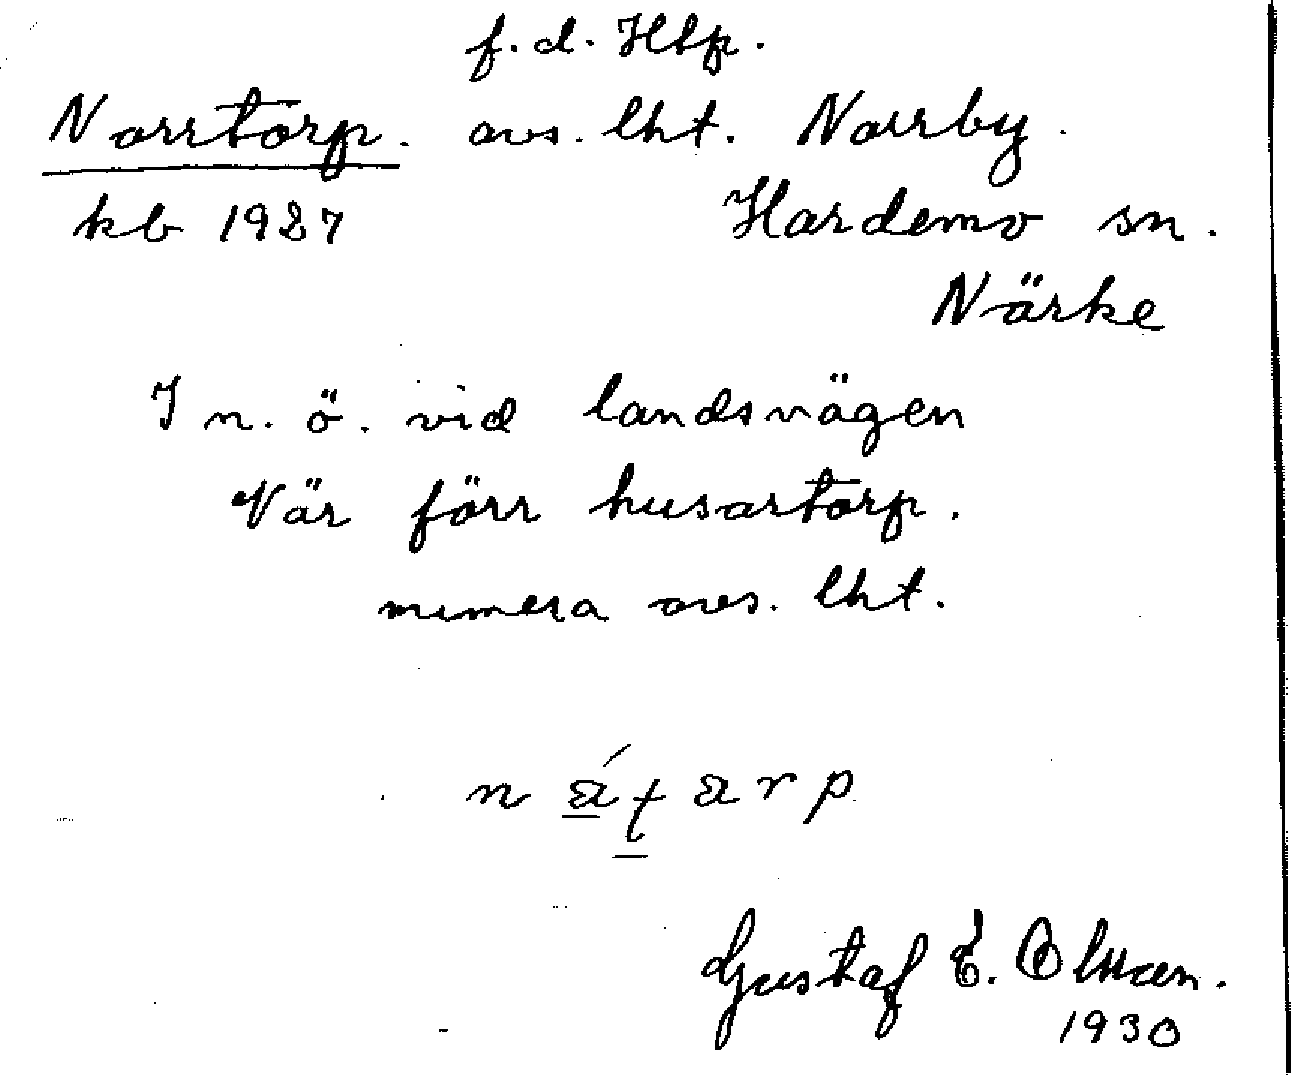 f.d. Htp.
Norrtorp. avs. lht. Norrby.
kb 1927 Hardemo sn.
Närke
I n. ö. vid landsvägen
Vär förr husartorp.
mumera avs. lht.
Gustaf E. Olsson.
1930